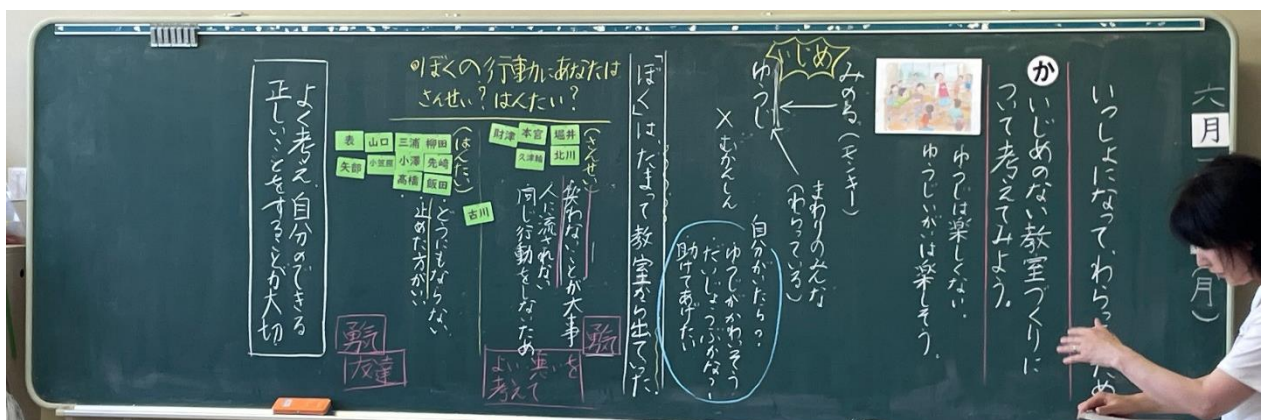 六月
月)
いっしょになって、わらっ
め
か
いじめのない教室づくりに
ついて考えてみよう。
ゆうじは楽しくない。
ゆうじいがいは楽しそう。
みのる(モンキー)
いじめ
ゆうじ
×むかんしん
まわりのみんな
(わらっている)
自分がいたら?
ゆうじがかわいそう
だいじょうぶかな?
助けてあげたい
「ぼく」は、だまって教室から出ていった。
◎ぼくの行動にあなたは
さんせい?はんたい?
(さんせい)
堀井
本宮
財津
北川
久津輪
笑わないことが大事
人に流されない
同じ行動をしないため
勇気
よい悪いを
考えて
古川
(はんたい)
柳田
三浦
山口
表
先崎
小澤
小笠原
矢部
飯田
髙橋
どうにもならない
止めた方がいい
勇気
友達
よく考え、自分のできる
正しいことをすることが大切